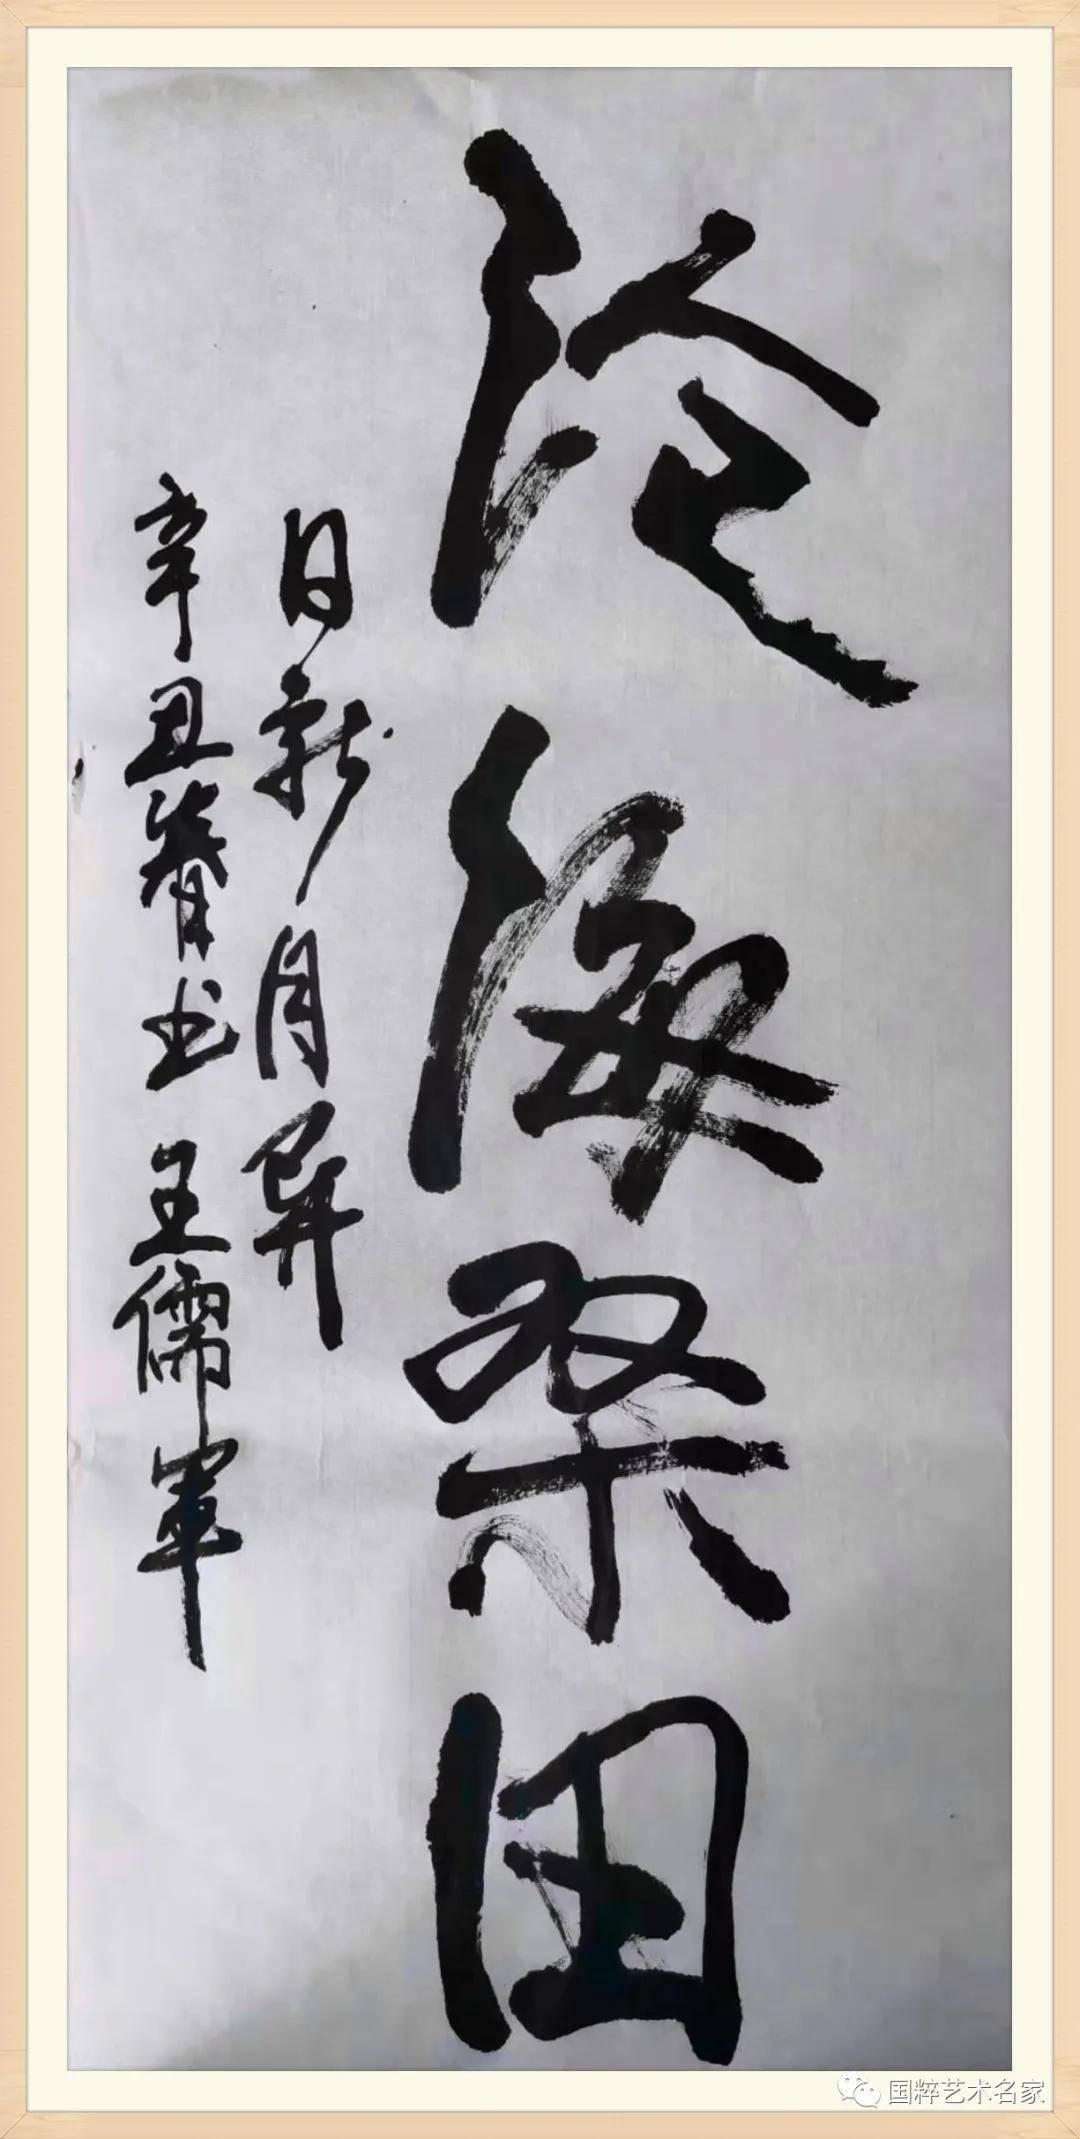 沧海桑田
日新月异
辛丑春月书 王儒军
国粹艺术名家